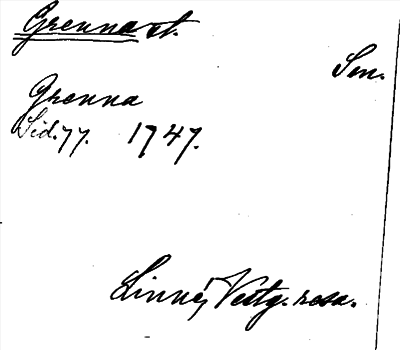 Grenna st.
Sm.
Grenna
Sid. 77. 1747.
Linné, Vestg. resa.